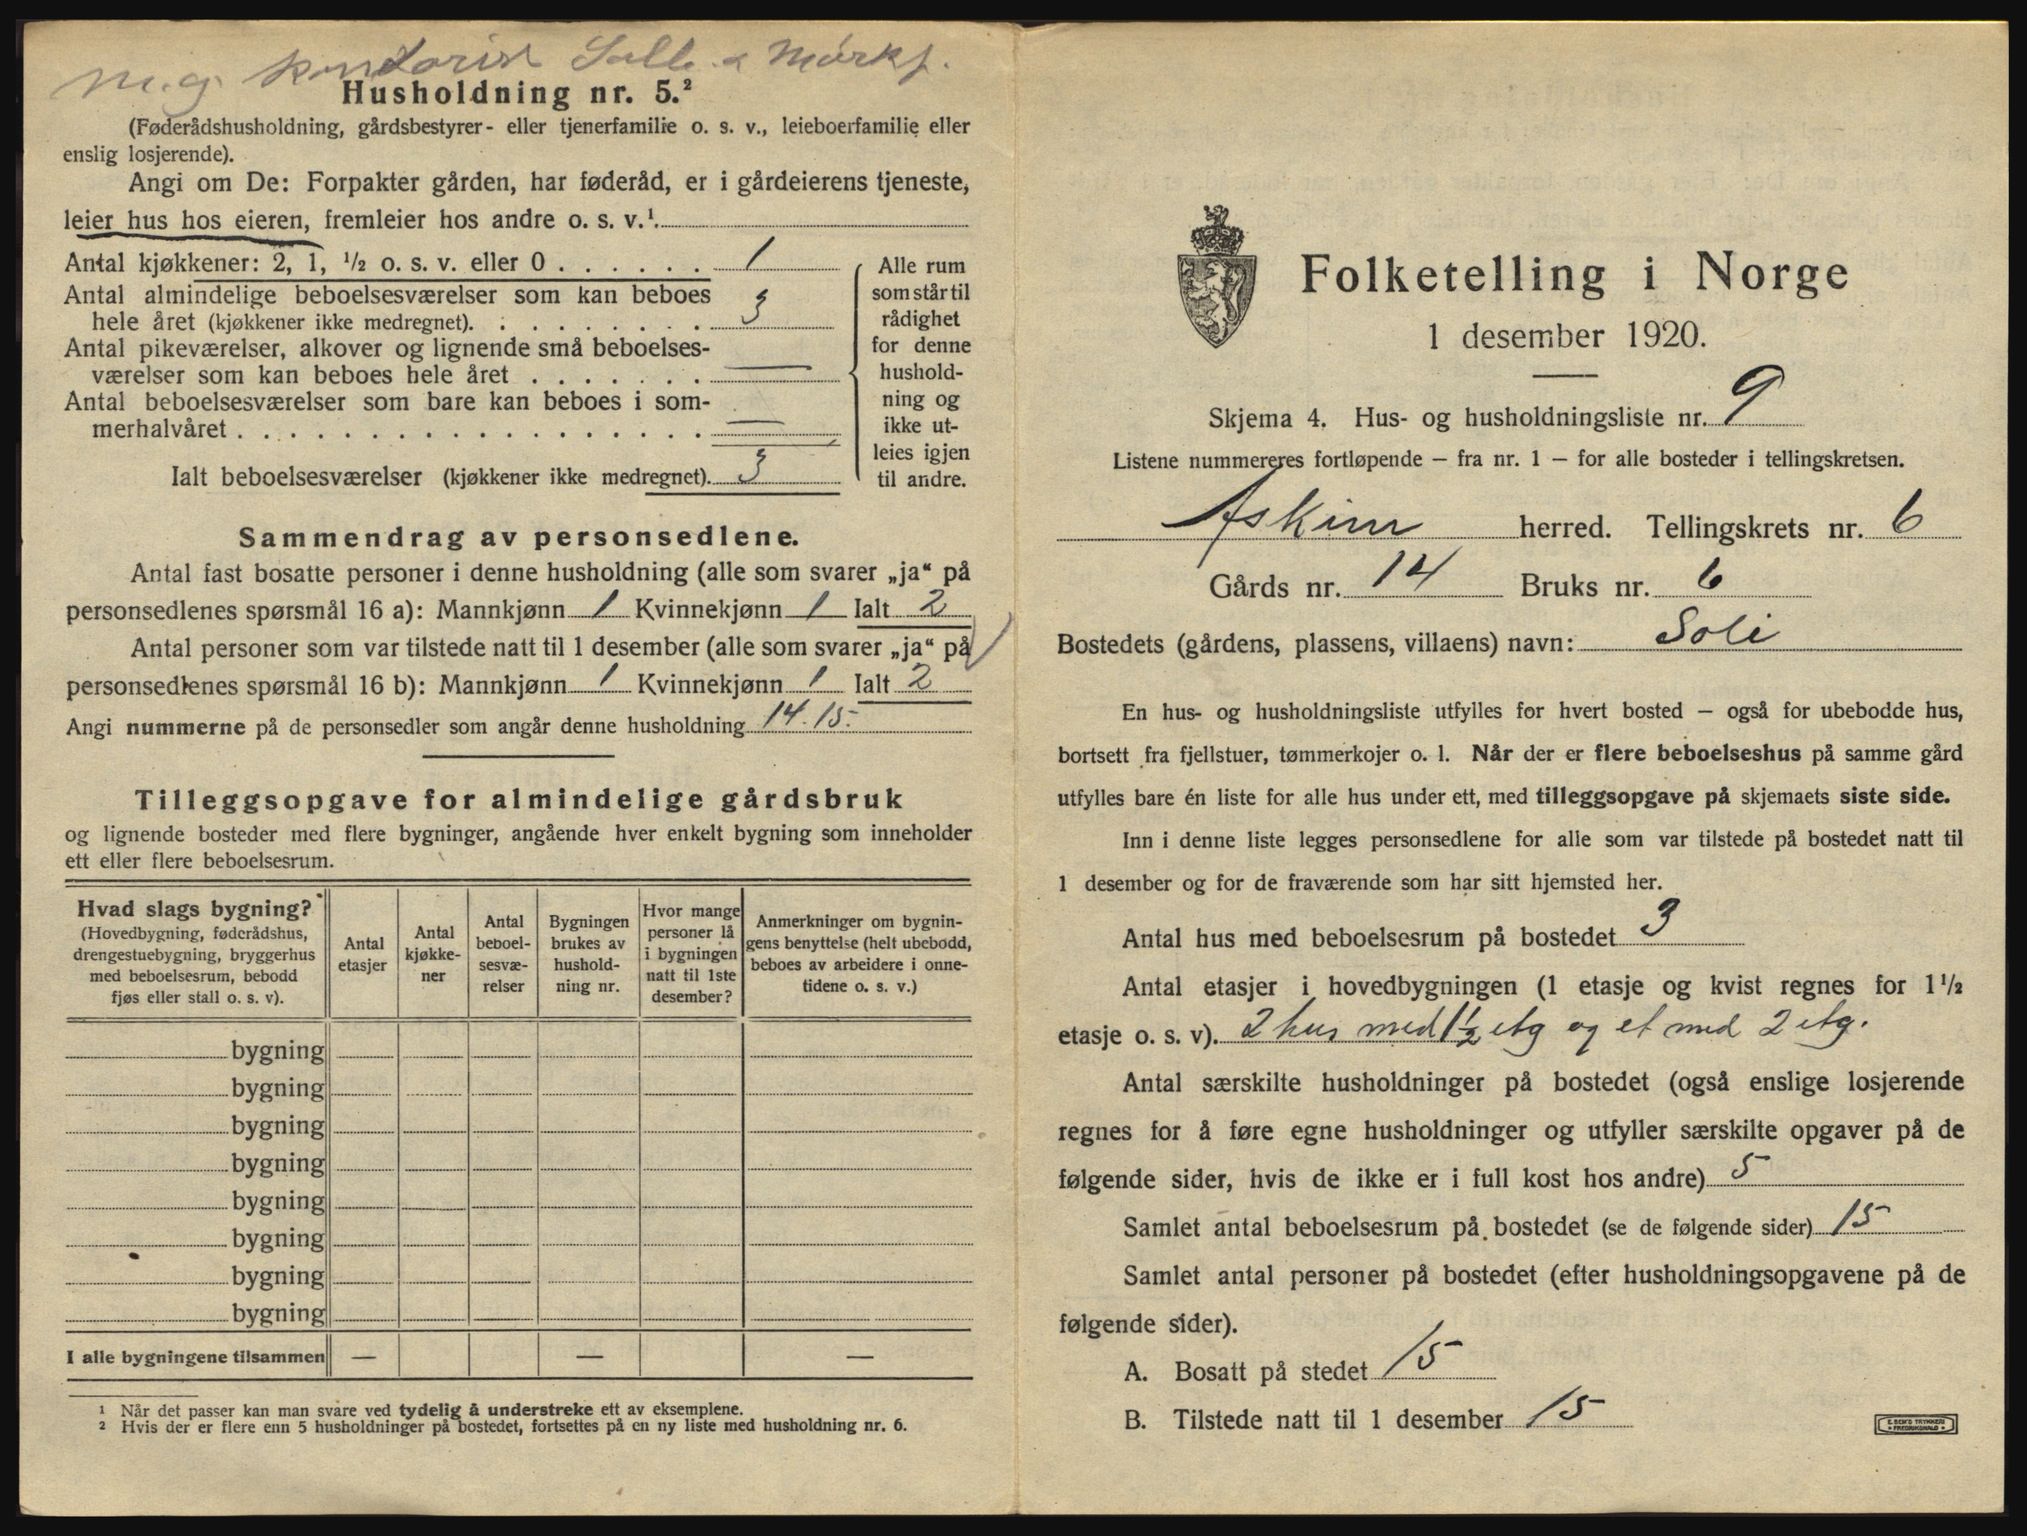 m. g. kontorist
Husholdning nr. 5.²
(Føderådshusholdning, gårdsbestyrer- eller tjenerfamilie o. s. v., leieboerfamilie eller
enslig losjerende).
Angi om De: Forpakter gården, har føderåd, er i gårdeierens tjeneste,
leier hus hos eieren, fremleier hos andre o. s. v.¹
Antal kjøkkener: 2, 1, ½ o. s. v. eller 0 . . . . . . 1
Antal almindelige beboelsesværelser som kan beboes
hele året (kjøkkener ikke medregnet). . . . . . . . . 3
Antal pikeværelser, alkover og lignende små beboelses-
værelser som kan beboes hele året . . . . . . . —
Antal beboelsesværelser som bare kan beboes i som-
merhalvåret . . . . . . . . . . . . . . . . . —
Ialt beboelsesværelser (kjøkkener ikke medregnet). 3
Alle rum
som står til
rådighet
for denne
hushold-
ning og
ikke ut-
leies igjen
til andre.
Sammendrag av personsedlene.
Antal fast bosatte personer i denne husholdning (alle som svarer „ja“ på
personsedlenes spørsmål 16 a): Mannkjønn 1 Kvinnekjønn 1 Ialt 2
Antal personer som var tilstede natt til 1 desember (alle som svarer „ja“ på
personsedlenes spørsmål 16 b): Mannkjønn 1 Kvinnekjønn 1 Ialt 2
Angi nummerne på de personsedler som angår denne husholdning 14. 15.
Tilleggsopgave for almindelige gårdsbruk
og lignende bosteder med flere bygninger, angående hver enkelt bygning som inneholder
ett eller flere beboelsesrum.
Hvad slags bygning?
(Hovedbygning, føderådshus,
drengestuebygning, bryggerhus
med beboelsesrum, bebodd
fjøs eller stall o. s. v).
Antal
etasjer
Antal
kjøkke-
ner
Antal
beboel-
sesvæ-
relser
Bygningen
brukes av
hushold-
ning nr.
Hvor mange
personer lå
i bygningen
natt til 1ste
desember?
Anmerkninger om bygnin-
gens benyttelse (helt ubebodd,
beboes av arbeidere i onne-
tidene o. s. v.)
bygning
bygning
bygning
bygning
bygning
bygning
bygning
bygning
I alle bygningene tilsammen — — —
¹ Når det passer kan man svare ved tydelig å understreke ett av eksemplene.
² Hvis der er flere enn 5 husholdninger på bostedet, fortsettes på en ny liste med husholdning nr. 6.
Folketelling i Norge
1 desember 1920.
Skjema 4. Hus- og husholdningsliste nr. 9
Listene nummereres fortløpende — fra nr. 1 — for alle bosteder i tellingskretsen.
Askim herred. Tellingskrets nr. 6
Gårds nr. 14 Bruks nr. 6
Bostedets (gårdens, plassens, villaens) navn: Soli
En hus- og husholdningsliste utfylles for hvert bosted — også for ubebodde hus,
bortsett fra fjellstuer, tømmerkojer o. l. Når der er flere beboelseshus på samme gård
utfylles bare én liste for alle hus under ett, med tilleggsopgave på skjemaets siste side.
Inn i denne liste legges personsedlene for alle som var tilstede på bostedet natt til
1 desember og for de fraværende som har sitt hjemsted her.
Antal hus med beboelsesrum på bostedet 3
Antal etasjer i hovedbygningen (1 etasje og kvist regnes for 1½
etasje o. s. v). 2 hus med 1½ etg og et med 2 etg.
Antal særskilte husholdninger på bostedet (også enslige losjerende
regnes for å føre egne husholdninger og utfyller særskilte opgaver på de
følgende sider, hvis de ikke er i full kost hos andre) 5
Samlet antal beboelsesrum på bostedet (se de følgende sider) 15
Samlet antal personer på bostedet (efter husholdningsopgavene på de
følgende sider).
A. Bosatt på stedet 15
B. Tilstede natt til 1 desember 15